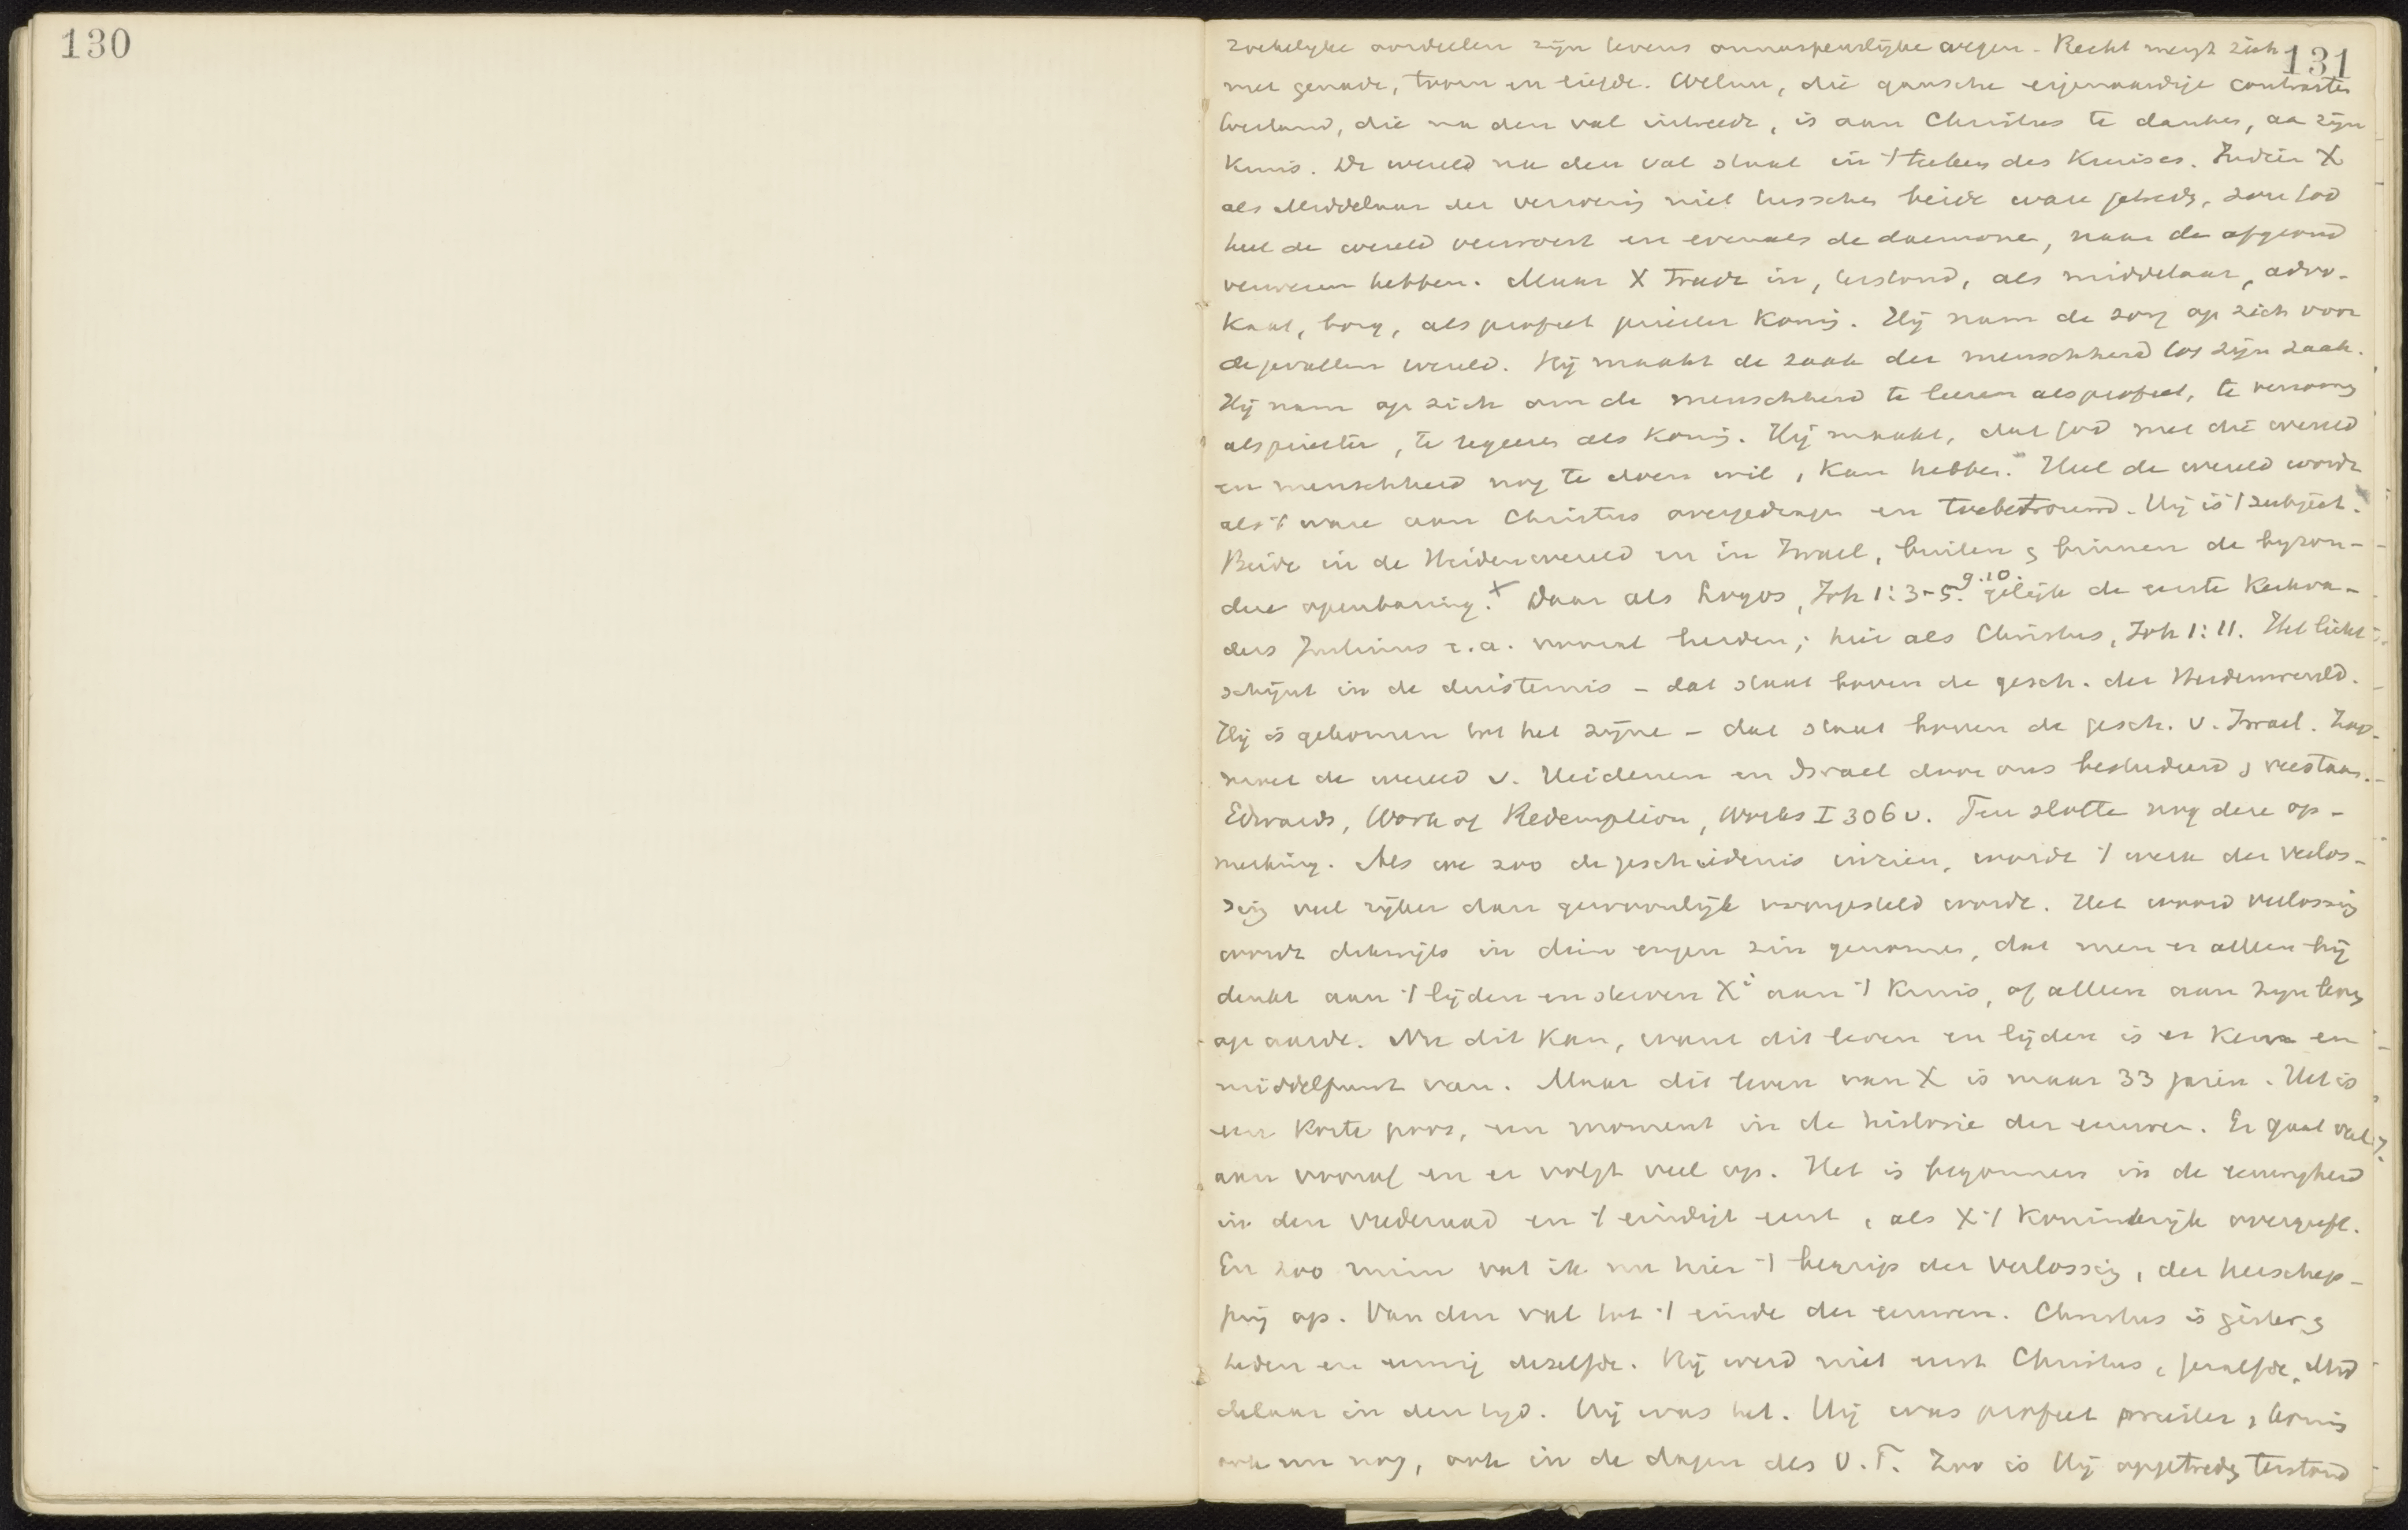 130
131
zoekelyke oordeelen zijn tevens onnaspeurlijke wegen. Recht mengt zich
met genade, toorn en liefde. Welnu, die gansche eigenaardige contrasten
toestand, die na den val intreedt, is aan Christus te danken, aa zijn
Kruis. De wereld na den val staat in 't teeken des Kruises. Indien X
als Middelaar der verzoening niet tusschen beide ware getreden, zou God
heel de wereld verwoest en evenals de daemonen, naar de afgrond
verwezen hebben. Maar X trad in, terstond, als middelaar, advo-
kaat, borg, als profeet priester Koning. Hij nam de zorg op zich voor
de gevallen wereld. Hij maakt de zaak der menschheid tot zijn zaak.
Hij nam op zich om de menschheid te leeren als profeet, te verzoenen
als priester, te regeeren als Koning. Hij maakt, dat God met die wereld
en menschheid nog te doen wil, kan hebben. Heel de wereld wordt
als 't ware aan Christus overgedragen en toebetrouwd. Hij is 't subject.
Beide in de Heidenwereld en in Israel, buiten en binnen de byzon-
dere openbaring.x Daar als Logos, Joh 1:3-5. 9.10. gelijk de eerste Kerkva-
ders Justinus e.a. vooral leerden; hier als Christus, Joh 1:11. Het licht
schijnt in de duisternis - dat staat boven de gesch. der Heidenwereld.
Hij is gekomen tot het zijne - dat staat boven de gesch. v. Israel. Zoo
moet de wereld v. Heidenen en Israel door ons bestudeerd en verstaan.
Edwards, Work of Redemption, Works I 306 v. Ten slotte nog deze op-
merking. Als we zoo de geschiedenis inzien, wordt 't werk der verlos-
sing veel rijker dan gewoonlijk voorgesteld wordt. Het woord verlossing
wordt dikwijls in dien engen zin genomen, dat men er alleen bij
denkt aan 't lijden en sterven Xi aan 't Kruis, of alleen aan zijn leven
op aarde. Nu dit kan, want dit leven en lijden is er Kern en
middelpunt van. Maar dit leven van X is maar 33 jaren. Het is
een korte poos, een moment in de historie der eeuwen. Er gaat veel
aan vooraf en er volgt veel op. Het is begonnen in de eeuwigheid
in den Vrederaad en 't eindigt eerst, als X 't Koninkrijk overgeeft.
En zoo ruim vat ik nu hier 't begrip der Verlossing, der herschep-
ping op. Van den val tot 't einde der eeuwen. Christus is gisteren
heden en eeuwig dezelfde. Hij werd niet eerst Christus, gezalfde, Mid
delaar in den tyd. Hij was het. Hij was profeet priester en koning
ook nu nog, ook in de dagen des O.T. Zoo is Hij opgetreden terstond